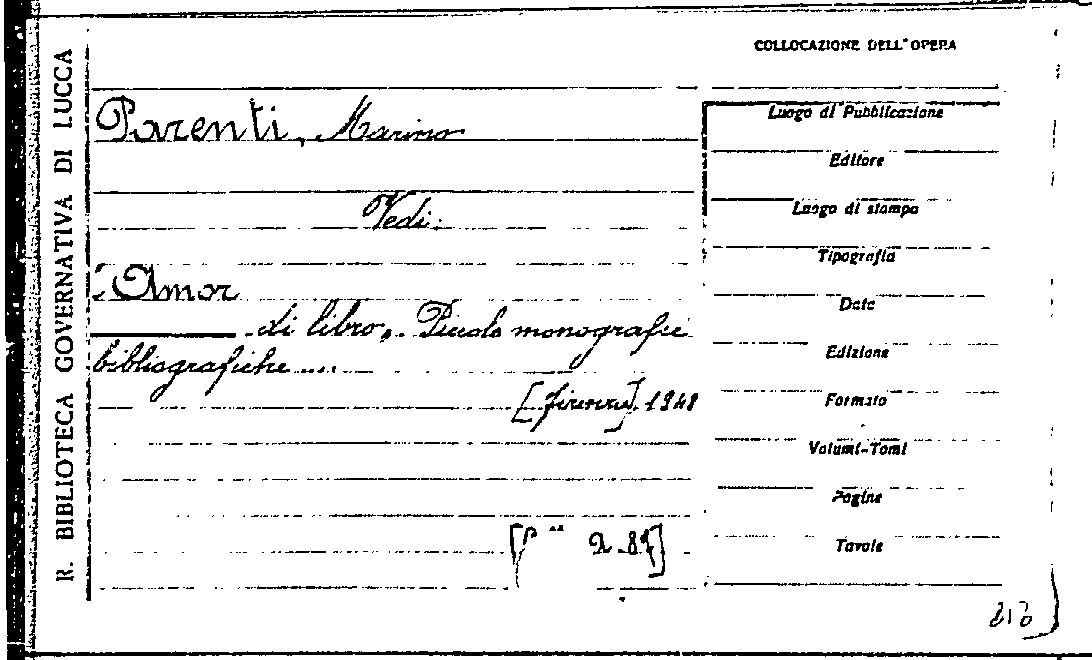 R. BIBLIOTECA GOVERNATIVA DI LUCCA
COLLOCAZIONE DELL'OPERA
Parenti, Marino
Vedi:
Amor
di libro. Piccole monografie
bibliografiche ....
[Firenze], 1948
Luogo di Pubblicazione
Editore
Luogo di stampa
Tipografia
Data
Edizione
Formato
Volumi-Tomi
Pagine
Tavole